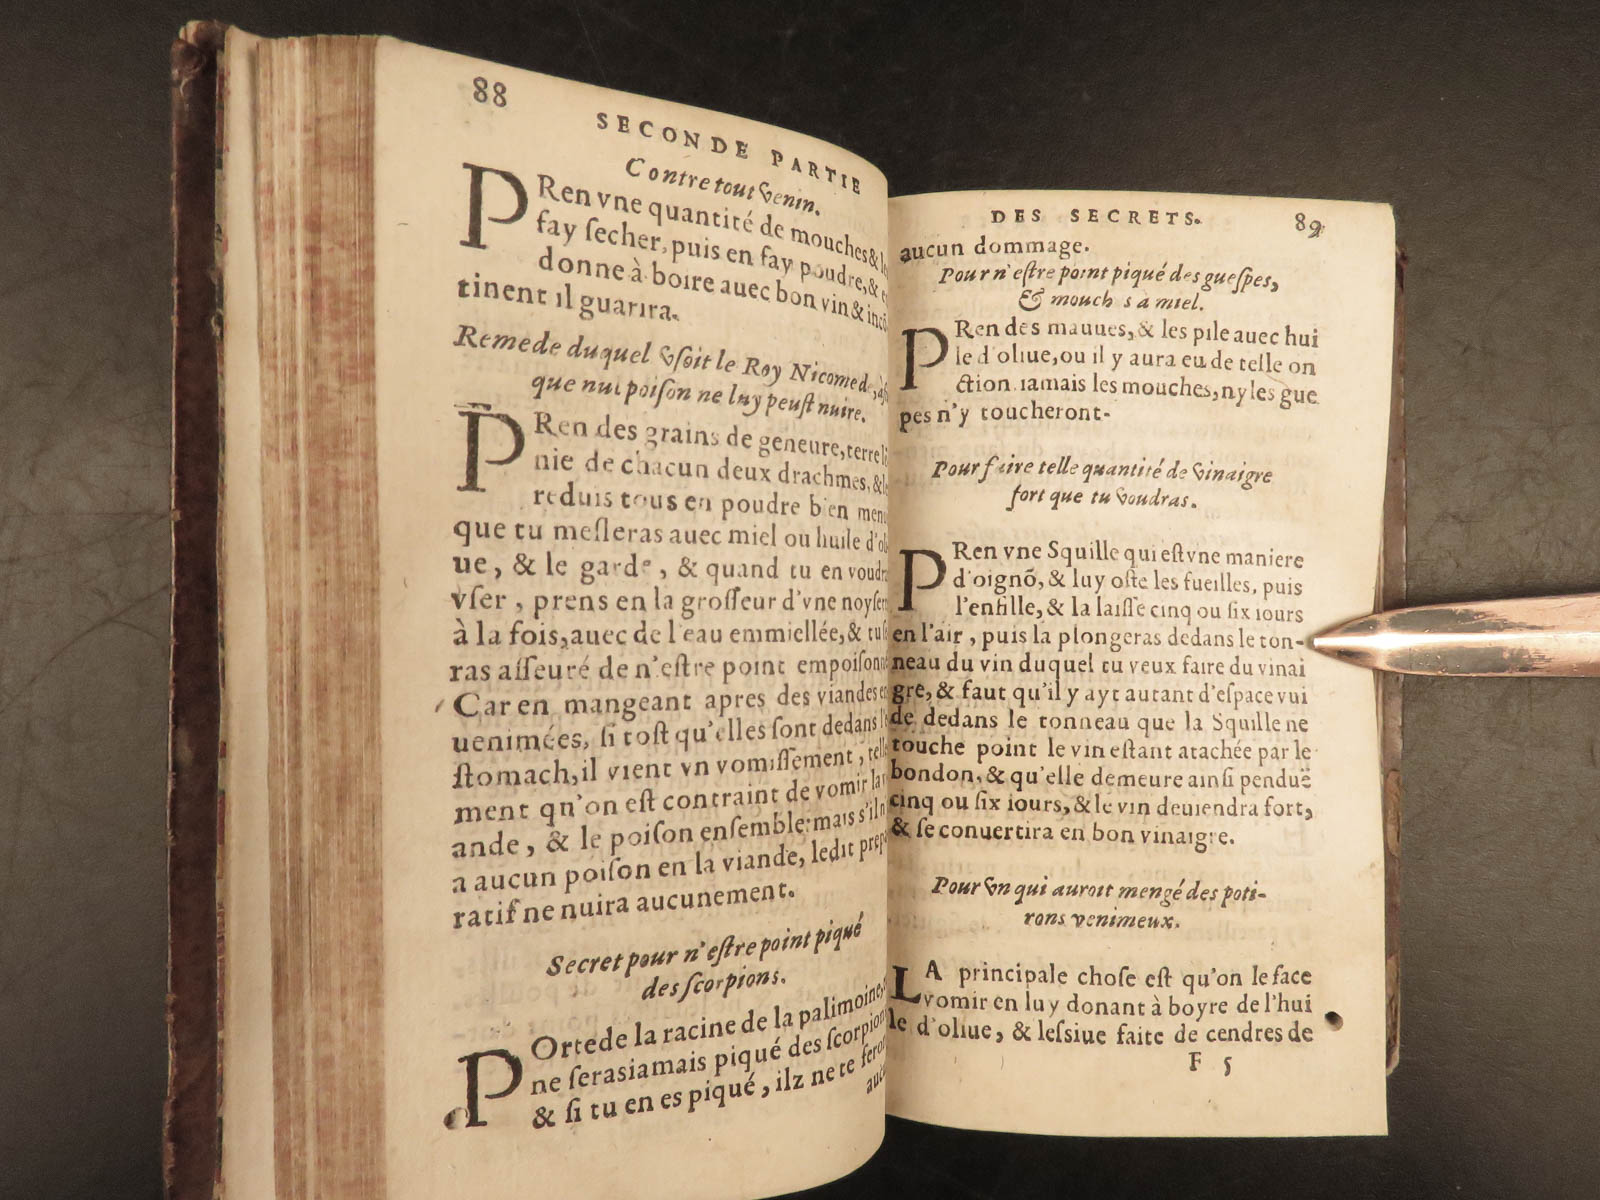 88
SECONDE PARTIE
Contre tout venin.
PRen vne quantité de mouches &
fay ſecher, puis en fay poudre, &
donne à boire auec bon vin & incō
tinent il guarira.
Remede duquel vſoit le Roy Nicomede,
que nul poiſon ne luy peuſt nuire.
PRen des grains de geneure, terre
nie de chacun deux drachmes, &
reduis tous en poudre bien menu
que tu meſleras auec miel ou huile d'oli
ue, & le garde, & quand tu en voudra
vſer, prens en la groſſeur d'vne noyſe
à la fois, auec de l'eau emmiellée, & tu
ras aſſeuré de n'eſtre point empoiſon
Car en mangeant apres des viandes en
uenimées, ſi toſt qu'elles ſont dedans l'e
ſtomach, il vient vn vomiſſement, telle
ment qu'on eſt contraint de vomir la vi
ande, & le poiſon enſemble: mais s'il n'
a aucun poiſon en la viande, ledit prepa
ratif ne nuira aucunement.
Secret pour n'eſtre point piqué
des ſcorpions.
POrte de la racine de la palimoine,
ne ſeras iamais piqué des ſcorpions
& ſi tu en es piqué, ilz ne te feront
aucu
DES SECRETS. 89
aucun dommage.
Pour n'eſtre point piqué des gueſpes,
& mouch s a miel.
PRen des mauues, & les pile auec hui
le d'oliue, ou il y aura eu de telle on
ction iamais les mouches, ny les gue
pes n'y toucheront-
Pour faire telle quantité de vinaigre
fort que tu voudras.
PRen vne Squille qui eſt vne maniere
d'oignõ, & luy oſte les fueilles, puis
l'enfille, & la laiſſe cinq ou ſix iours
en l'air, puis la plongeras dedans le ton-
neau du vin duquel tu veux faire du vinai
gre, & faut qu'il y ayt autant d'eſpace vui
de dedans le tonneau que la Squille ne
touche point le vin eſtant atachée par le
bondon, & qu'elle demeure ainſi penduë
cinq ou ſix iours, & le vin deuiendra fort,
& ſe conuertira en bon vinaigre.
Pour vn qui auroit mengé des poti-
rons venimeux.
LA principale choſe eſt qu'on le face
vomir en luy donant à boyre de l'hui
le d'oliue, & leſſiue faite de cendres de
F 5